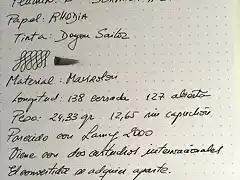 Papel: RHODIA
Tinta: Deyan Sailor
Material: Makrolon
Longitud: 138 cerrada 127 abierta
Peso: 24,33 gr. 12,65 sin capuchón
Parecido con Lamy 2000
Viene con dos cartuchos internacionales
El convertidor se adquiere aparte.